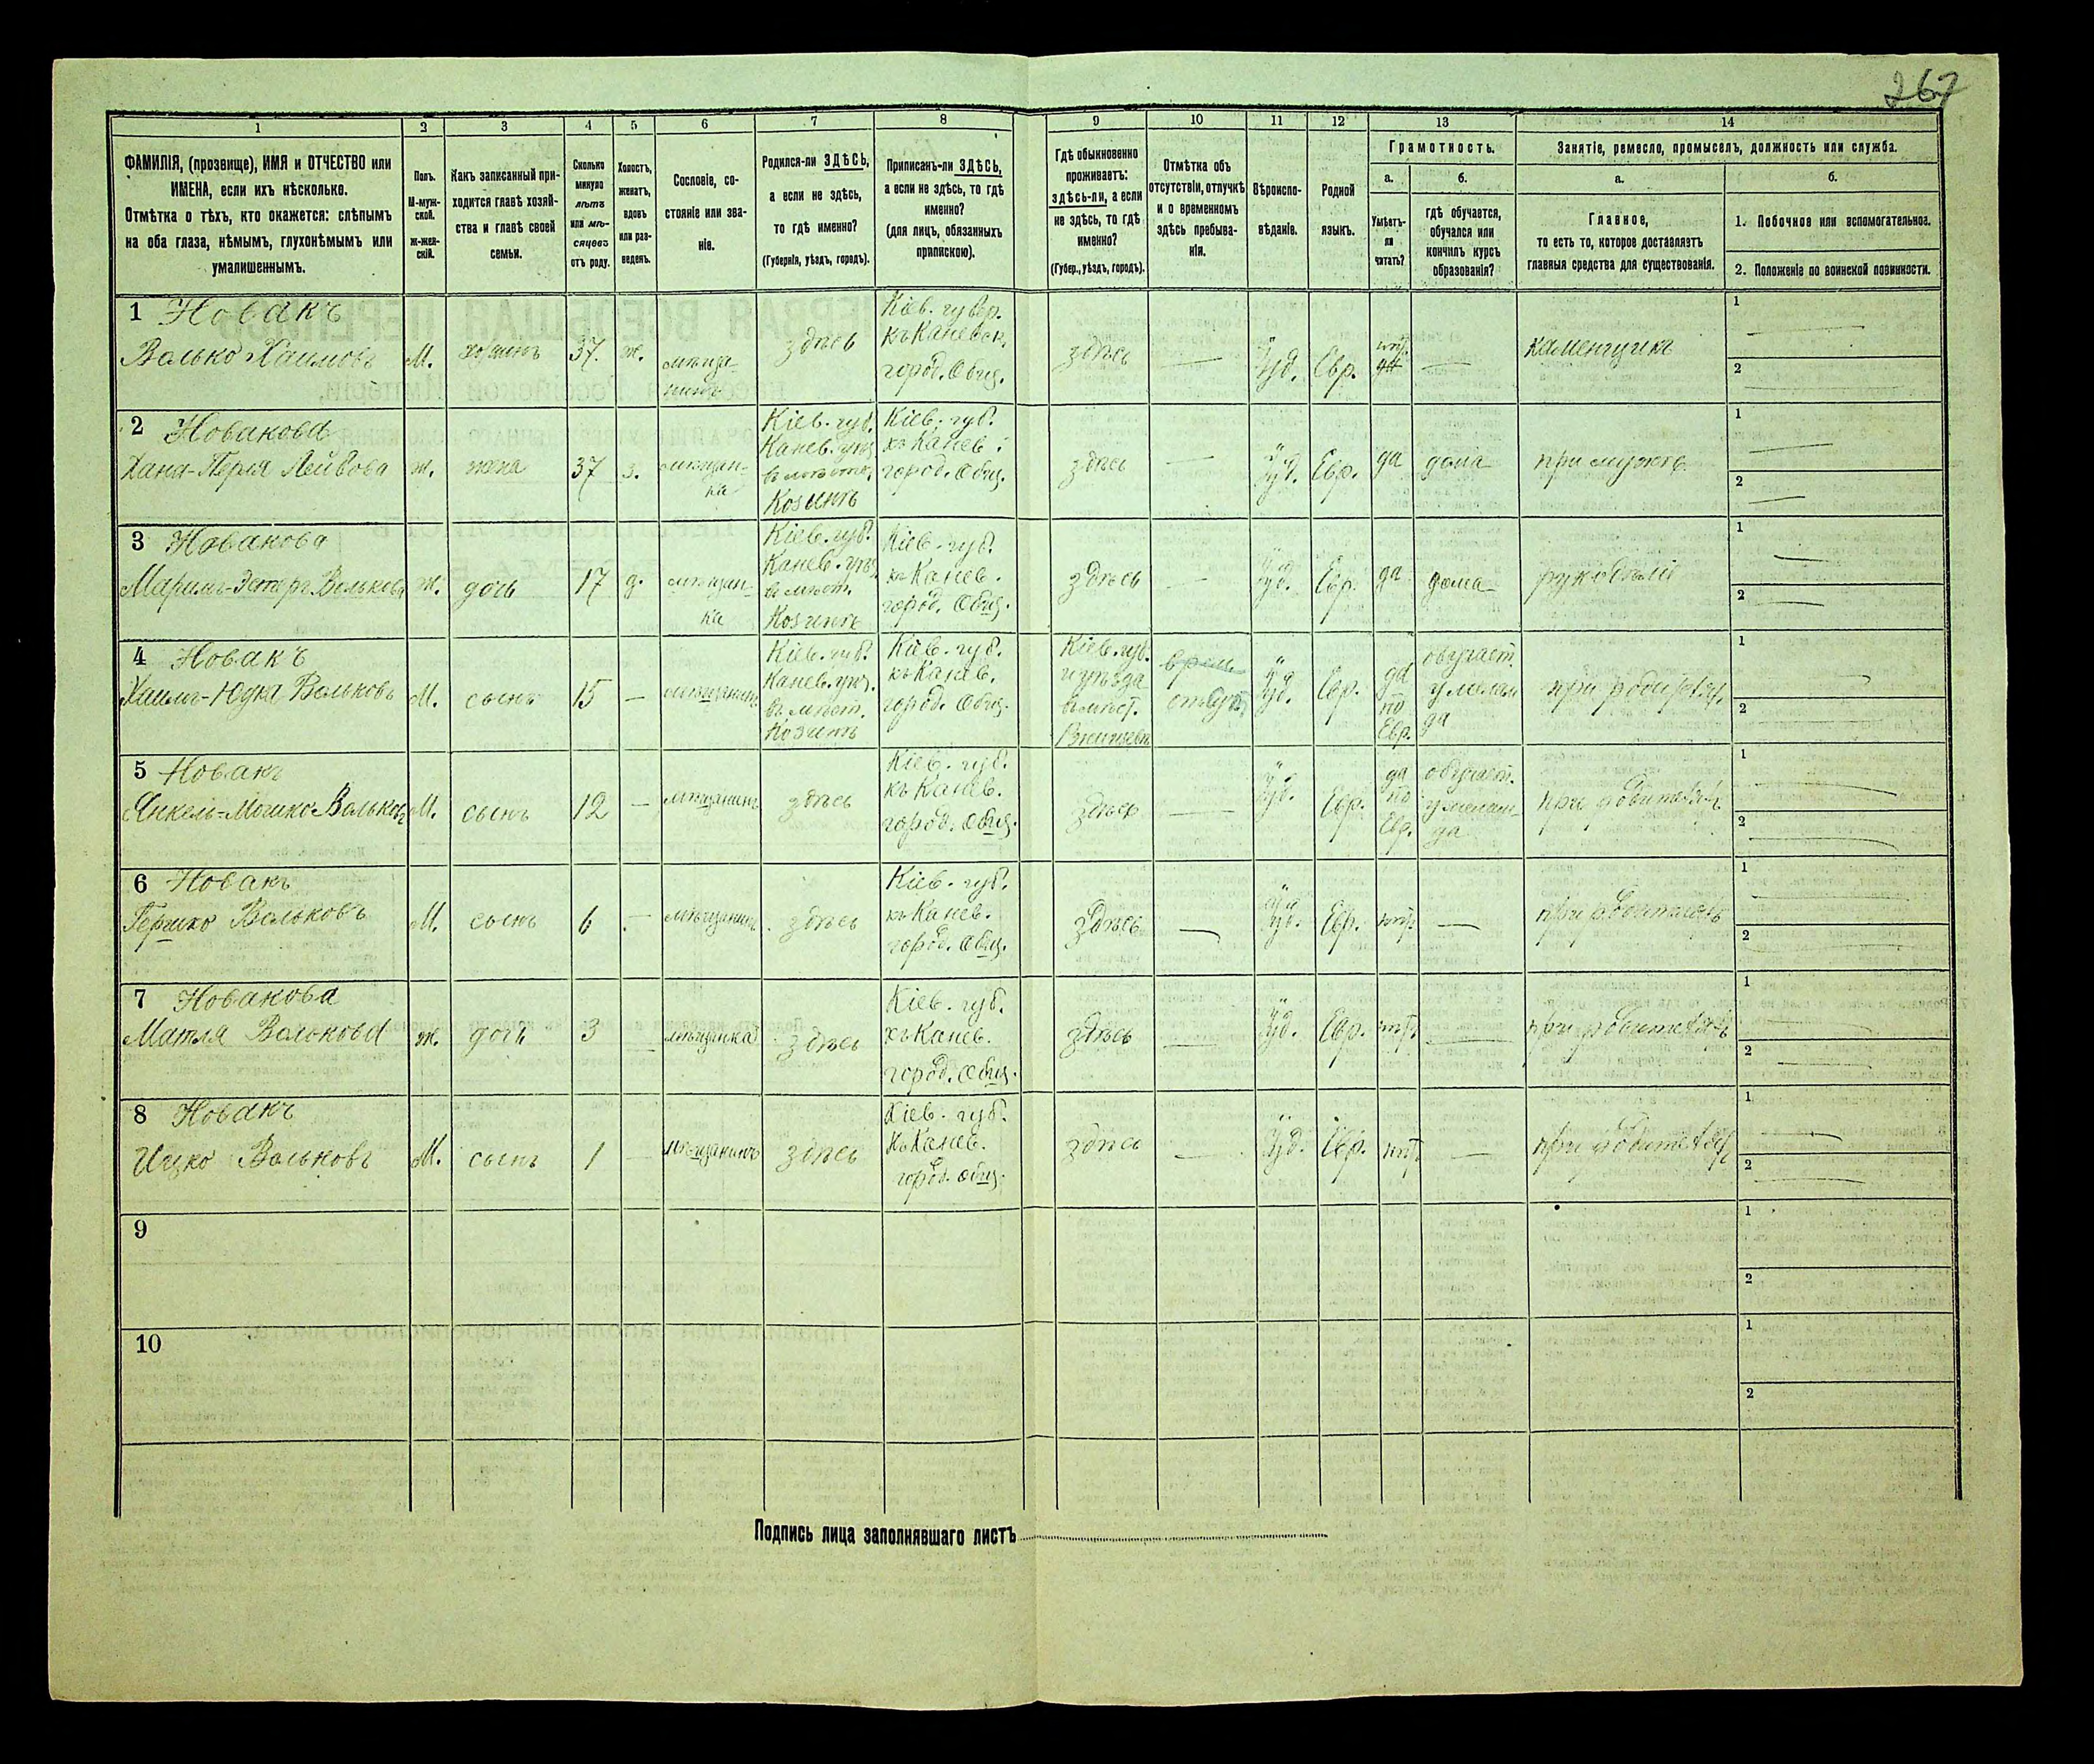 267
1 2 3 4 5 6 7 8 9 10 11 12 13 14
ФАМИЛІЯ, (прозвище), ИМЯ и ОТЧЕСТВО или
ИМЕНА, если ихъ нѣсколько.
Отмѣтка о тѣхъ, кто окажется: слѣпымъ
на оба глаза, нѣмымъ, глухонѣмымъ или
умалишеннымъ.
Полъ.
М-муж-
ской.
ж-жен-
скій.
Какъ записанный при-
ходится главѣ хозяй-
ства и главѣ своей
семьи.
Сколько
минуло
лѣтъ
или мѣ-
сяцевъ
отъ роду.
Холостъ,
женатъ,
вдовъ
или раз-
веденъ.
Сословіе, со-
стояніе или зва-
ніе.
Родился-ли ЗДѢСЬ,
а если не здѣсь,
то гдѣ именно?
(Губернія, уѣздъ, городъ).
Приписанъ-ли ЗДѢСЬ,
а если не здѣсь, то гдѣ
именно?
(для лицъ, обязанныхъ
припискою).
Гдѣ обыкновенно
проживаетъ:
здѣсь-ли, а если
не здѣсь, то гдѣ
именно?
(Губер., уѣздъ, городъ).
Отмѣтка объ
отсутствіи, отлучкѣ
и о временномъ
здѣсь пребыва-
ніи.
Вѣроиспо-
вѣданіе.
Родной
языкъ.
Грамотность.
а.
Умѣетъ-
ли
читать?
б.
гдѣ обучается,
обучался или
кончилъ курсъ
образованія?
Занятіе, ремесло, промыселъ, должность или служба.
а.
Главное,
то есть то, которое доставляетъ
главныя средства для существованія.
б.
1. Побочное или вспомогательное.
2. Положеніе по воинской повинности.
1 Новакъ
Волько Хаимовъ
М.
хозяинъ
37.
ж.
мѣща-
нинъ
здѣсь
Кіев. губер.
къ Каневск.
город. Общ.
здѣсь
Іуд.
Евр.
нѣт.
каменщикъ
1
2
2 Новакова
Хана-Перля Лейбова
ж.
жена
37
з.
мѣщан-
ка
Кіев. губ.
Канев. уѣз.
в мѣстеч.
Козинѣ
Кіев. губ.
къ Канев.
город. Общ.
здѣсь
Іуд.
Евр.
да
дома
при мужѣ
1
2
3 Новакова
Маріимъ-Эстеръ Волькова
ж.
дочь
17
д.
мѣщан-
ка
Кіев. губ.
Канев. уѣз.
в мѣст.
Козинѣ
Кіев. губ.
къ Канев.
город. Общ.
здѣсь
Іуд.
Евр.
да
дома
1
2
4 Новакъ
Хаимъ-Юдка Вольковъ
М.
сынъ
15
мѣщанинъ
Кіев. губ.
Канев. уѣз.
въ мѣст.
Козинѣ
Кіев. губ.
къ Канев.
город. Общ.
Кіев. губ.
и уѣзда
в мѣст.
врем.
Іуд.
Евр.
да
по
Евр.
обучает.
у мелам
да
при родител.
1
2
5 Новакъ
Янкель-Мошко Вольковъ
М.
сынъ
12
мѣщанинъ
здѣсь
Кіев. губ.
къ Канев.
город. Общ.
здѣсь
Іуд.
Евр.
да
по
Евр.
обучает.
у мелам-
да
при родителяхъ
1
2
6 Новакъ
Гершко Вольковъ
М.
сынъ
6
мѣщанинъ
здѣсь
Кіев. губ.
къ Канев.
город. Общ.
здѣсь
Іуд.
Евр.
нѣт.
при родителяхъ
1
2
7 Новакова
Матля Волькова
ж.
дочь
3
мѣщанка
здѣсь
Кіев. губ.
къ Канев.
город. Общ.
здѣсь
Іуд.
Евр.
нѣт.
при родителяхъ
1
2
8 Новакъ
Ицко Вольковъ
М.
сынъ
1
мѣщанинъ
здѣсь
Кіев. губ.
къ Канев.
город. Общ.
здѣсь
Іуд.
Евр.
нѣт.
при родителяхъ
1
2
9
1
2
10
1
2
Подпись лица заполнявшаго листъ